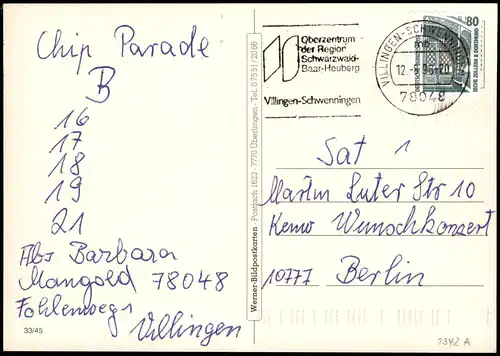 Chip Parade
B
16
17
18
19
21
Abs Barbara
Mangold 78048
Fohlenweg 1
Villingen
33/45
Werner-Bildpostkarten · Postfach 1623 · 7770 Überlingen · Tel. 07551/2066
Oberzentrum
der Region
Schwarzwald-
Baar-Heuberg
Villingen-Schwenningen
VILLINGEN-SCHWENNINGEN 1
mb
12.-8.95-20
78048
80
Sat 1
Martin Luter Str 10
Keno Wunschkonzert
10777 Berlin
2342 A